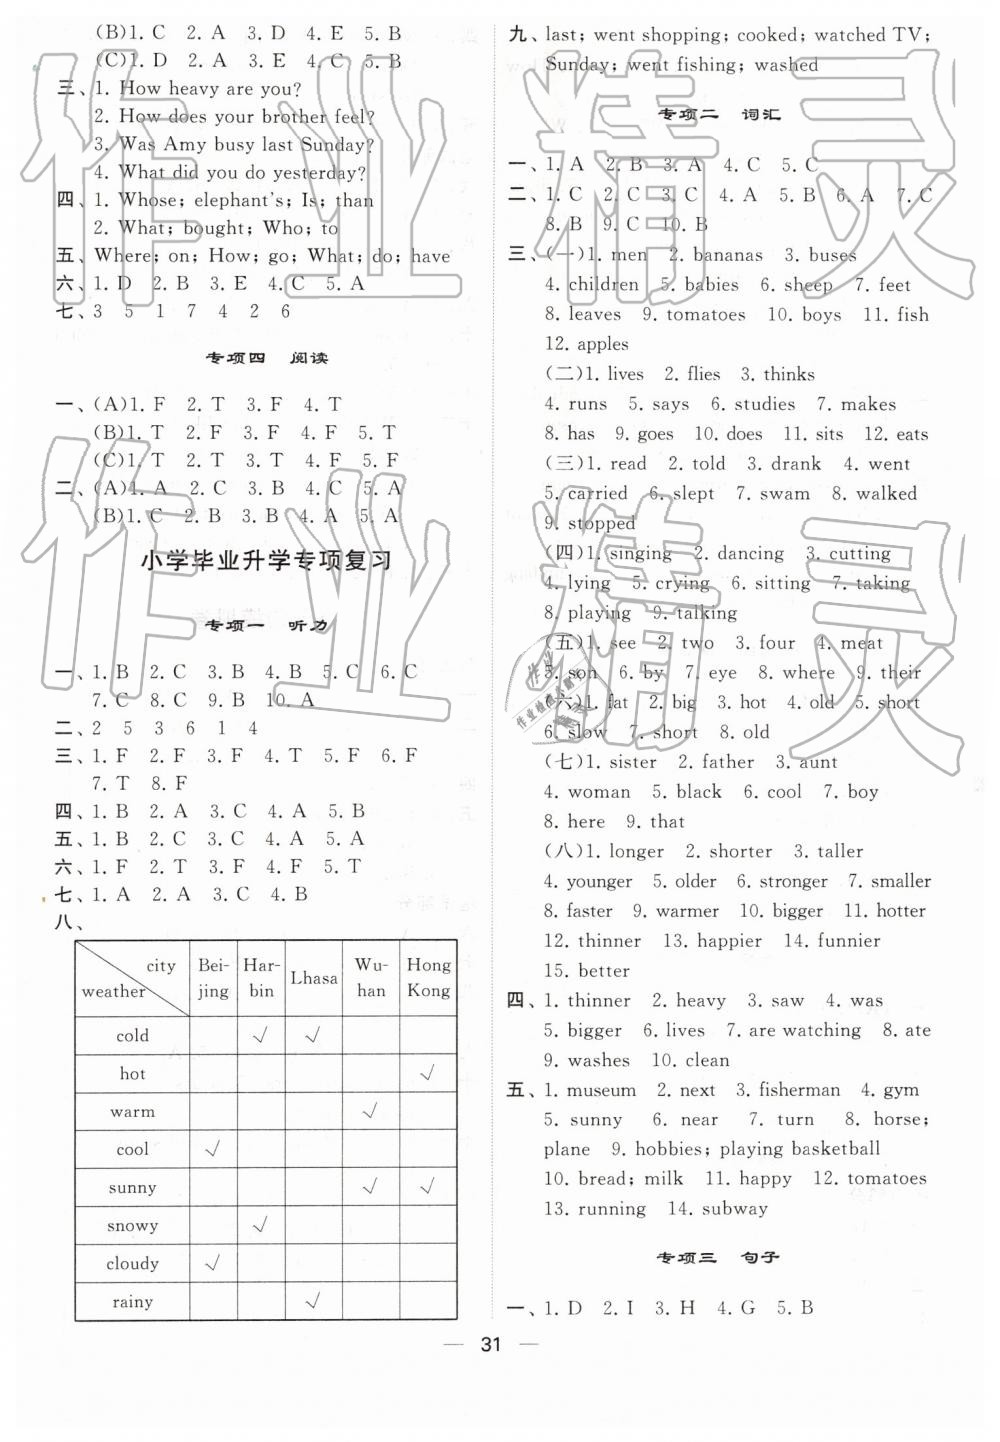 (B)1. C 2. A 3. D 4. E 5. B
(C)1. D 2. A 3. E 4. C 5. B
三、1. How heavy are you?
2. How does your brother feel?
3. Was Amy busy last Sunday?
4. What did you do yesterday?
四、1. Whose; elephant's; Is; than
2. What; bought; Who; to
五、Where; on; How; go; What; do; have
六、1. D 2. B 3. E 4. C 5. A
七、3 5 1 7 4 2 6
专项四 阅读
一、(A)1. F 2. T 3. F 4. T
(B)1. T 2. F 3. F 4. F 5. T
(C)1. T 2. T 3. T 4. F 5. F
二、(A)1. A 2. C 3. B 4. C 5. A
(B)1. C 2. B 3. B 4. A 5. A
小学毕业升学专项复习
专项一 听力
一、1. B 2. C 3. B 4. B 5. C 6. C
7. C 8. C 9. B 10. A
二、2 5 3 6 1 4
三、1. F 2. F 3. F 4. T 5. F 6. F
7. T 8. F
四、1. B 2. A 3. C 4. A 5. B
五、1. B 2. C 3. C 4. A 5. A
六、1. F 2. T 3. F 4. F 5. T
七、1. A 2. A 3. C 4. B
八、
city weather Bei-jing Har-bin Lhasa Wu-han Hong Kong
cold √ √
hot √
warm √
cool √
sunny √ √
snowy √
cloudy √
rainy √
九、last; went shopping; cooked; watched TV;
Sunday; went fishing; washed
专项二 词汇
一、1. A 2. B 3. A 4. C 5. C
二、1. C 2. C 3. C 4. A 5. B 6. A 7. C
8. B 9. C 10. B
三、(一)1. men 2. bananas 3. buses
4. children 5. babies 6. sheep 7. feet
8. leaves 9. tomatoes 10. boys 11. fish
12. apples
(二)1. lives 2. flies 3. thinks
4. runs 5. says 6. studies 7. makes
8. has 9. goes 10. does 11. sits 12. eats
(三)1. read 2. told 3. drank 4. went
5. carried 6. slept 7. swam 8. walked
9. stopped
(四)1. singing 2. dancing 3. cutting
4. lying 5. crying 6. sitting 7. taking
8. playing 9. talking
(五)1. see 2. two 3. four 4. meat
5. son 6. by 7. eye 8. where 9. their
(六)1. fat 2. big 3. hot 4. old 5. short
6. slow 7. short 8. old
(七)1. sister 2. father 3. aunt
4. woman 5. black 6. cool 7. boy
8. here 9. that
(八)1. longer 2. shorter 3. taller
4. younger 5. older 6. stronger 7. smaller
8. faster 9. warmer 10. bigger 11. hotter
12. thinner 13. happier 14. funnier
15. better
四、1. thinner 2. heavy 3. saw 4. was
5. bigger 6. lives 7. are watching 8. ate
9. washes 10. clean
五、1. museum 2. next 3. fisherman 4. gym
5. sunny 6. near 7. turn 8. horse;
plane 9. hobbies; playing basketball
10. bread; milk 11. happy 12. tomatoes
13. running 14. subway
专项三 句子
一、1. D 2. I 3. H 4. G 5. B
— 31 —
作业精灵
作业精灵